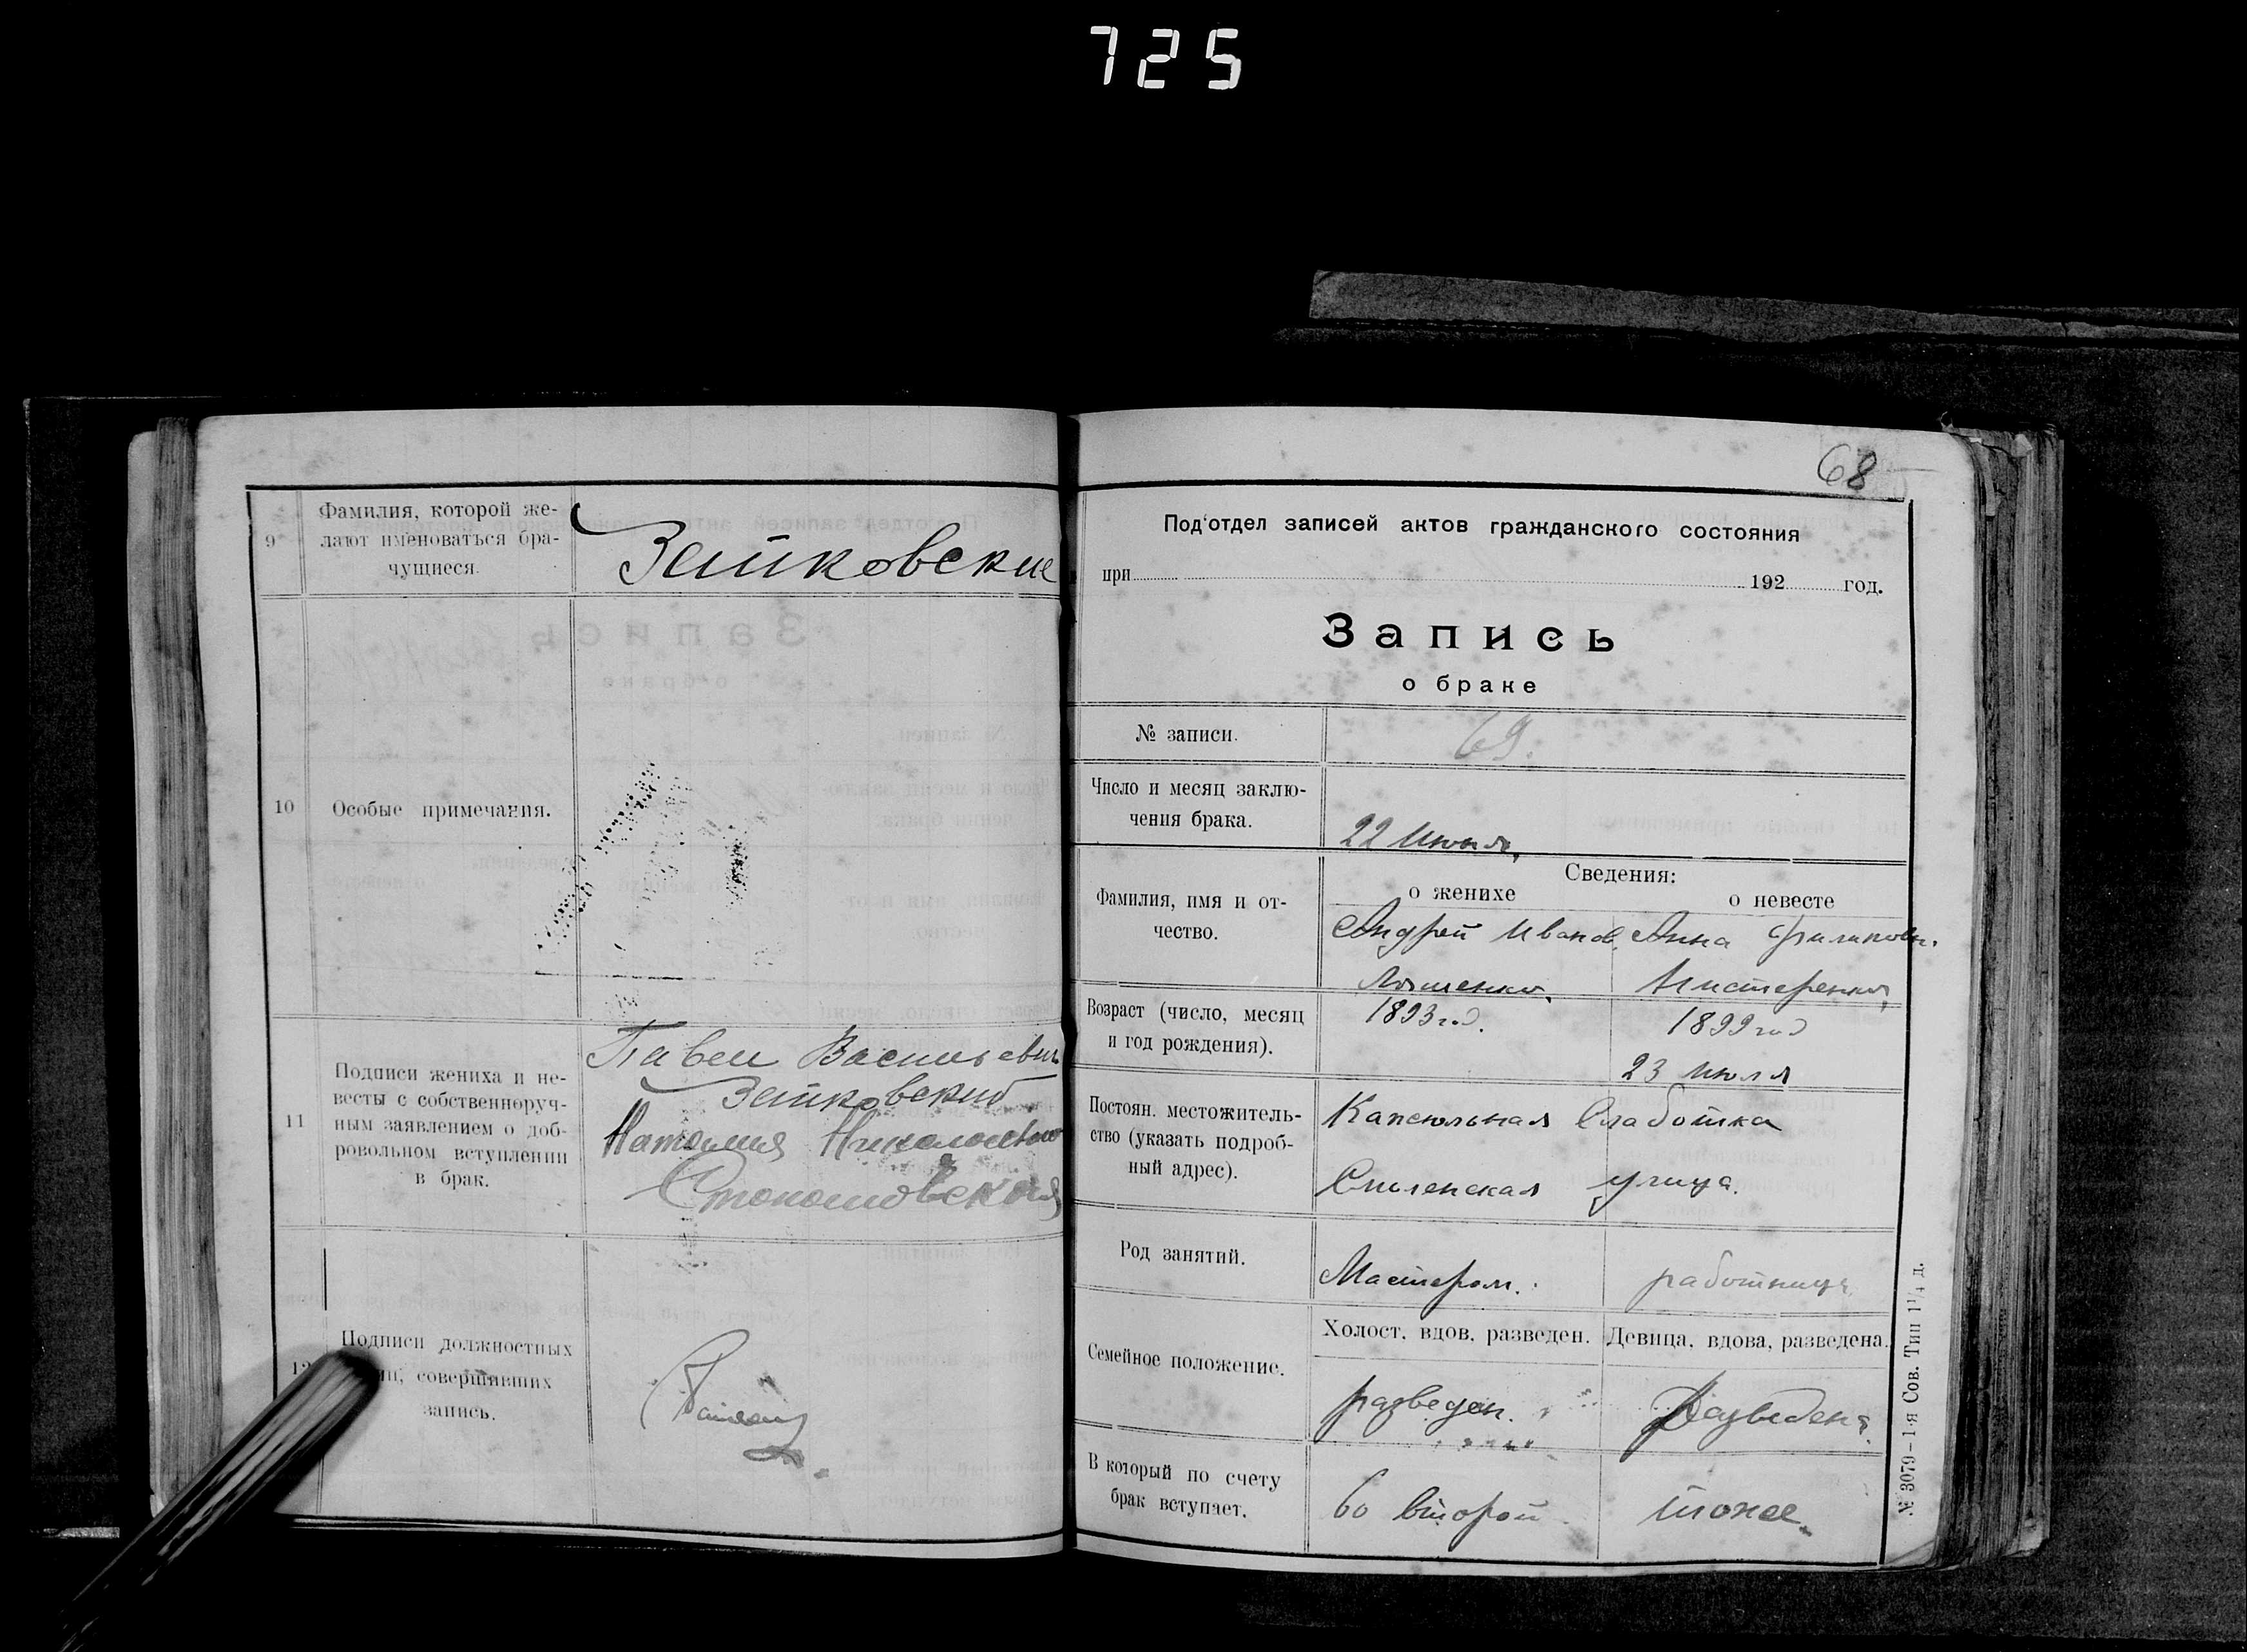 725
9
Фамилия, которой же-
лают именоваться бра-
чущиеся.
10
Особые примечания.
11
Подписи жениха и не-
весты с собственноруч-
ным заявлением о доб-
ровольном вступлении
в брак.
Павел Васильевич
Наталия Николаевна
12
Подписи должностных
лиц, совершивших
запись.
68
Под'отдел записей актов гражданского состояния
при 192 год.
Запись
о браке
№ записи.
69.
Число и месяц заклю-
чения брака.
22
Сведения:
о женихе о невесте
Фамилия, имя и от-
чество.
Андрей Иванов. Анна Филиповн.
Возраст (число, месяц
и год рождения).
1893 год. 1899 год
23 июля
Постоян. местожитель-
ство (указать подроб-
ный адрес).
Капсюльная Слаботка
Смоленская улица.
Род занятий.
Мастером. работница.
Семейное положение.
Холост, вдов, разведен. Девица, вдова, разведена.
разведен. Разведена.
В который по счету
брак вступает.
во второй тоже.
№ 3079–1-я Сов. Тип 1¼ д.